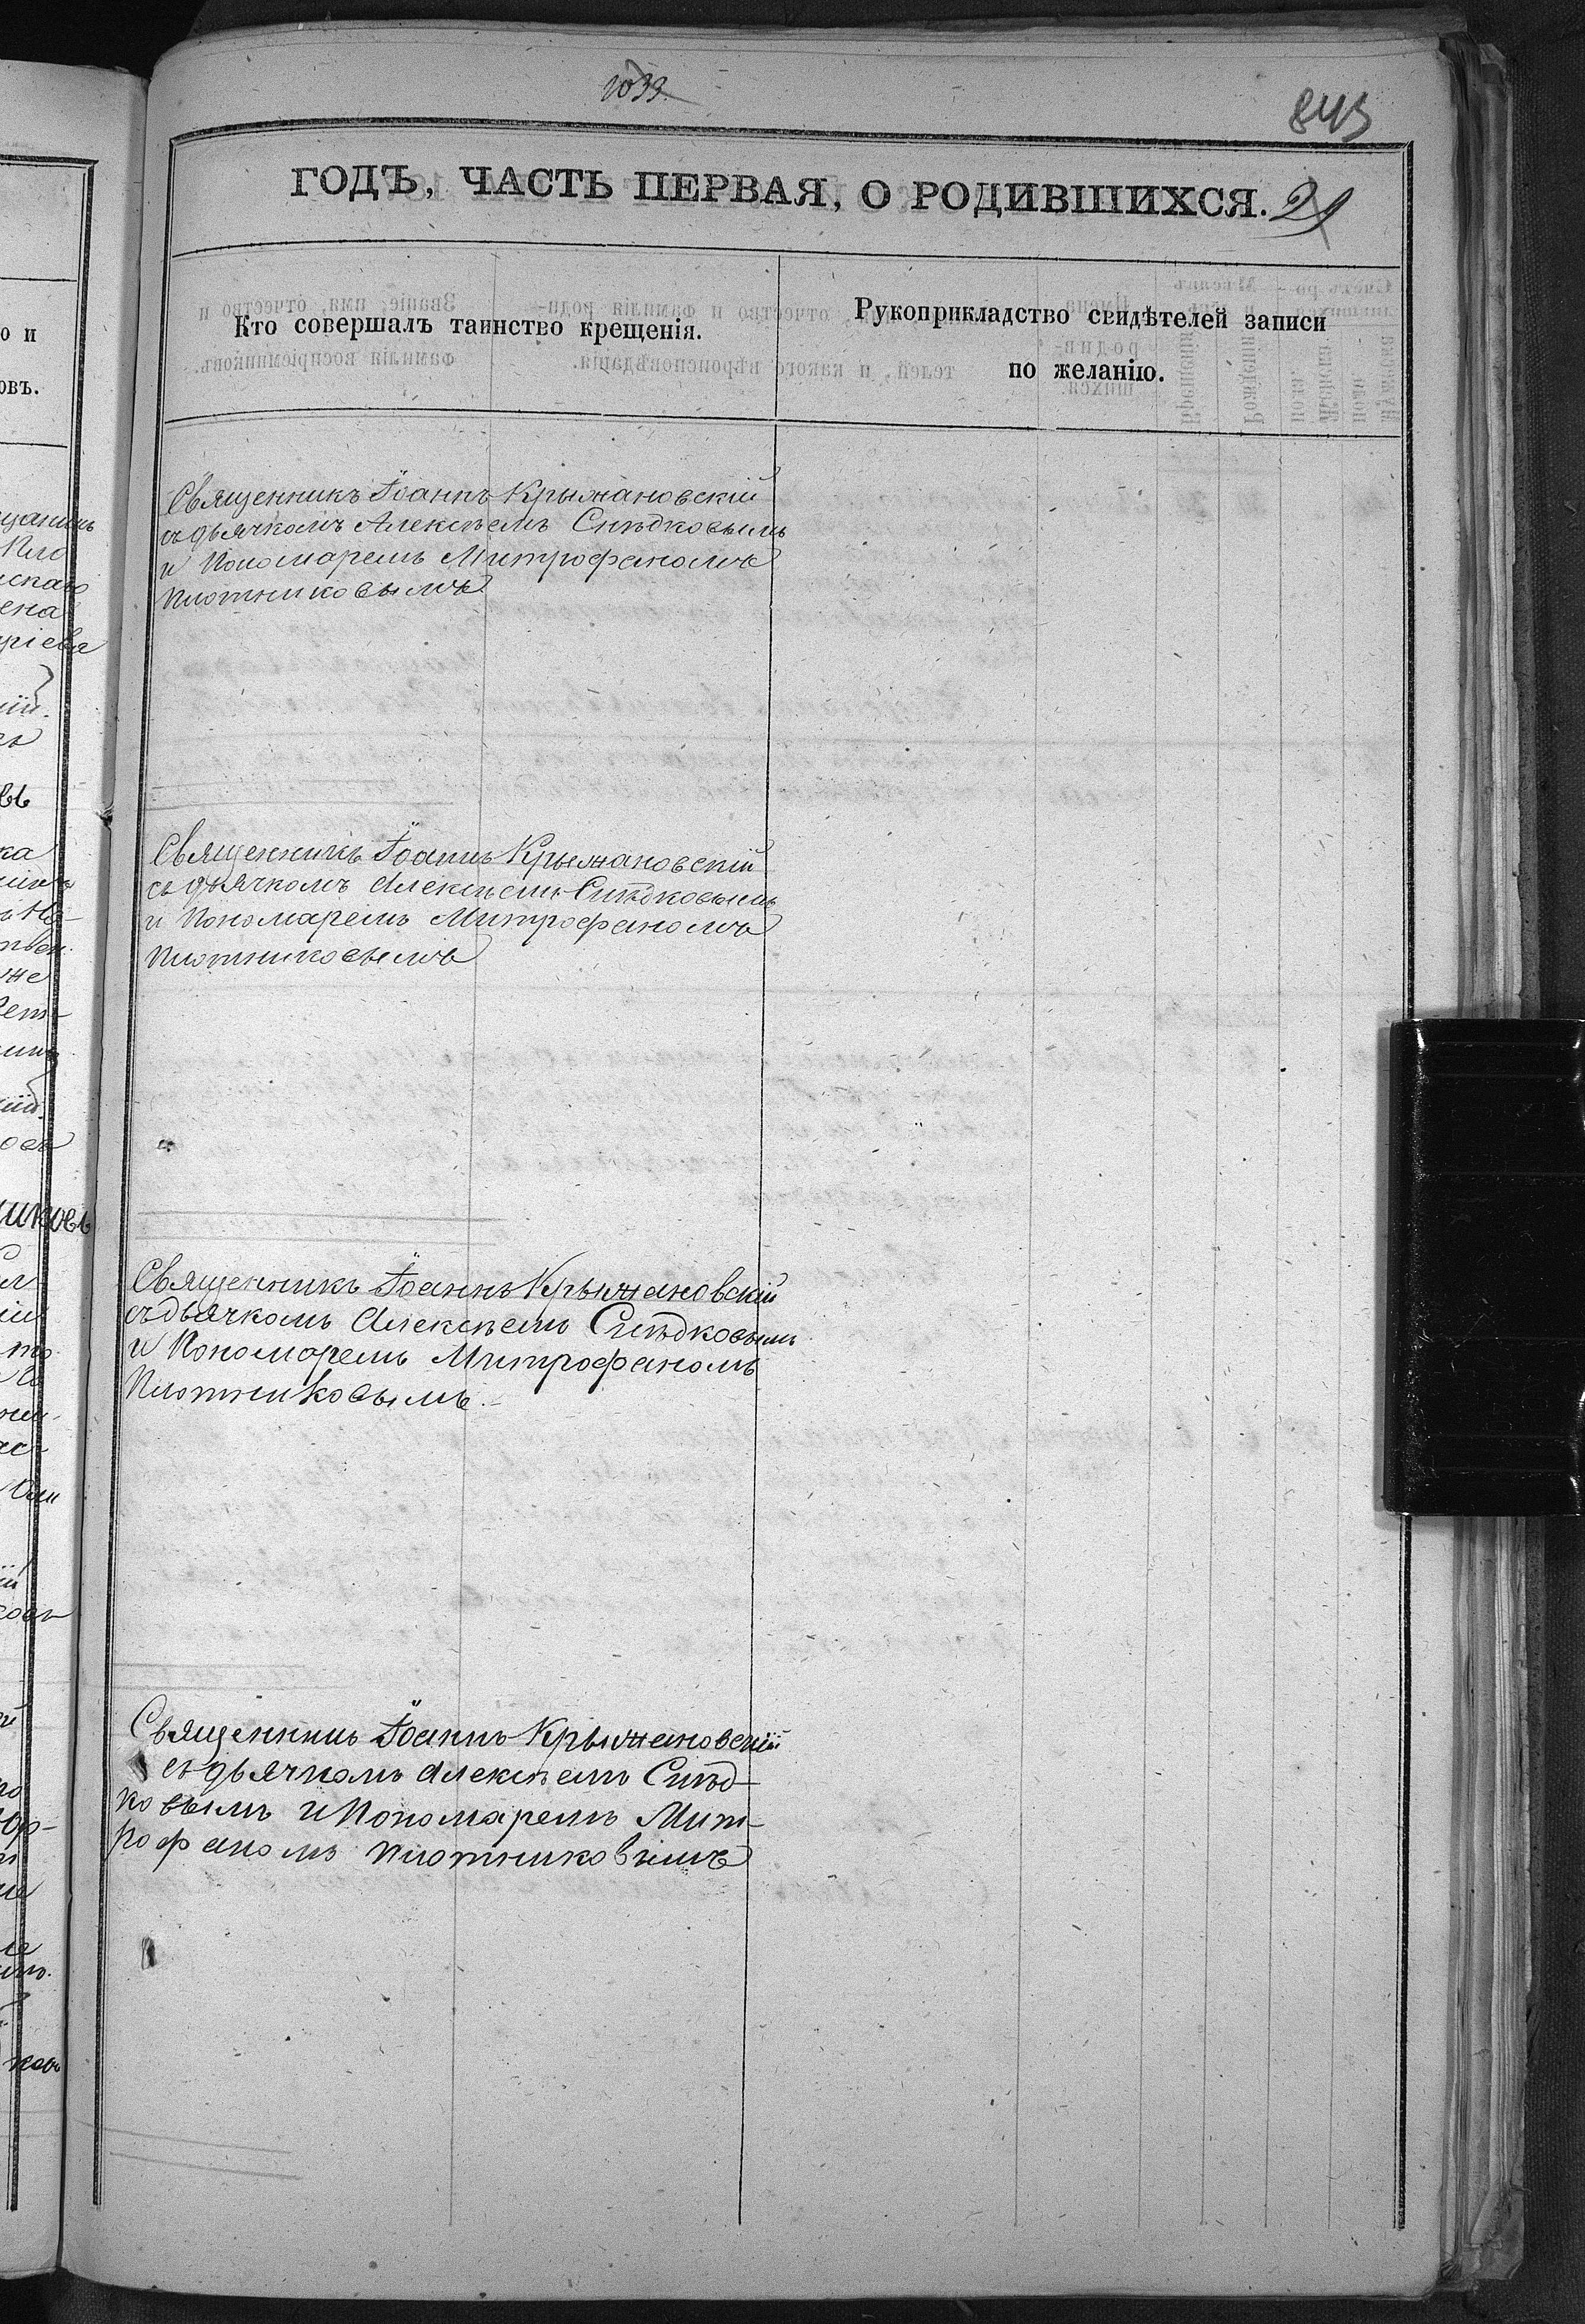 1033
843
ГОДЪ, ЧАСТЬ ПЕРВАЯ, О РОДИВШИХСЯ. 21
Кто совершалъ таинство крещенія.
Рукоприкладство свидѣтелей записи
по желанію.
Священникъ Іоаннъ Крыжановскій
съ дьячкомъ Алексѣемъ Снѣдковымъ
и Пономаремъ Митрофаномъ
Плотниковымъ
Священникъ Іоаннъ Крыжановскій
съ дьячкомъ Алексѣемъ Снѣдковымъ
и Пономаремъ Митрофаномъ
Плотниковымъ
Священникъ Іоаннъ Крыжановскій
съ дьячкомъ Алексѣемъ Снѣдковымъ
и Пономаремъ Митрофаномъ
Плотниковымъ.
Священникъ Іоаннъ Крыжановскій
съ дьячкомъ Алексѣемъ Снѣд-
ковымъ и Пономаремъ Мит-
рофаномъ Плотниковымъ